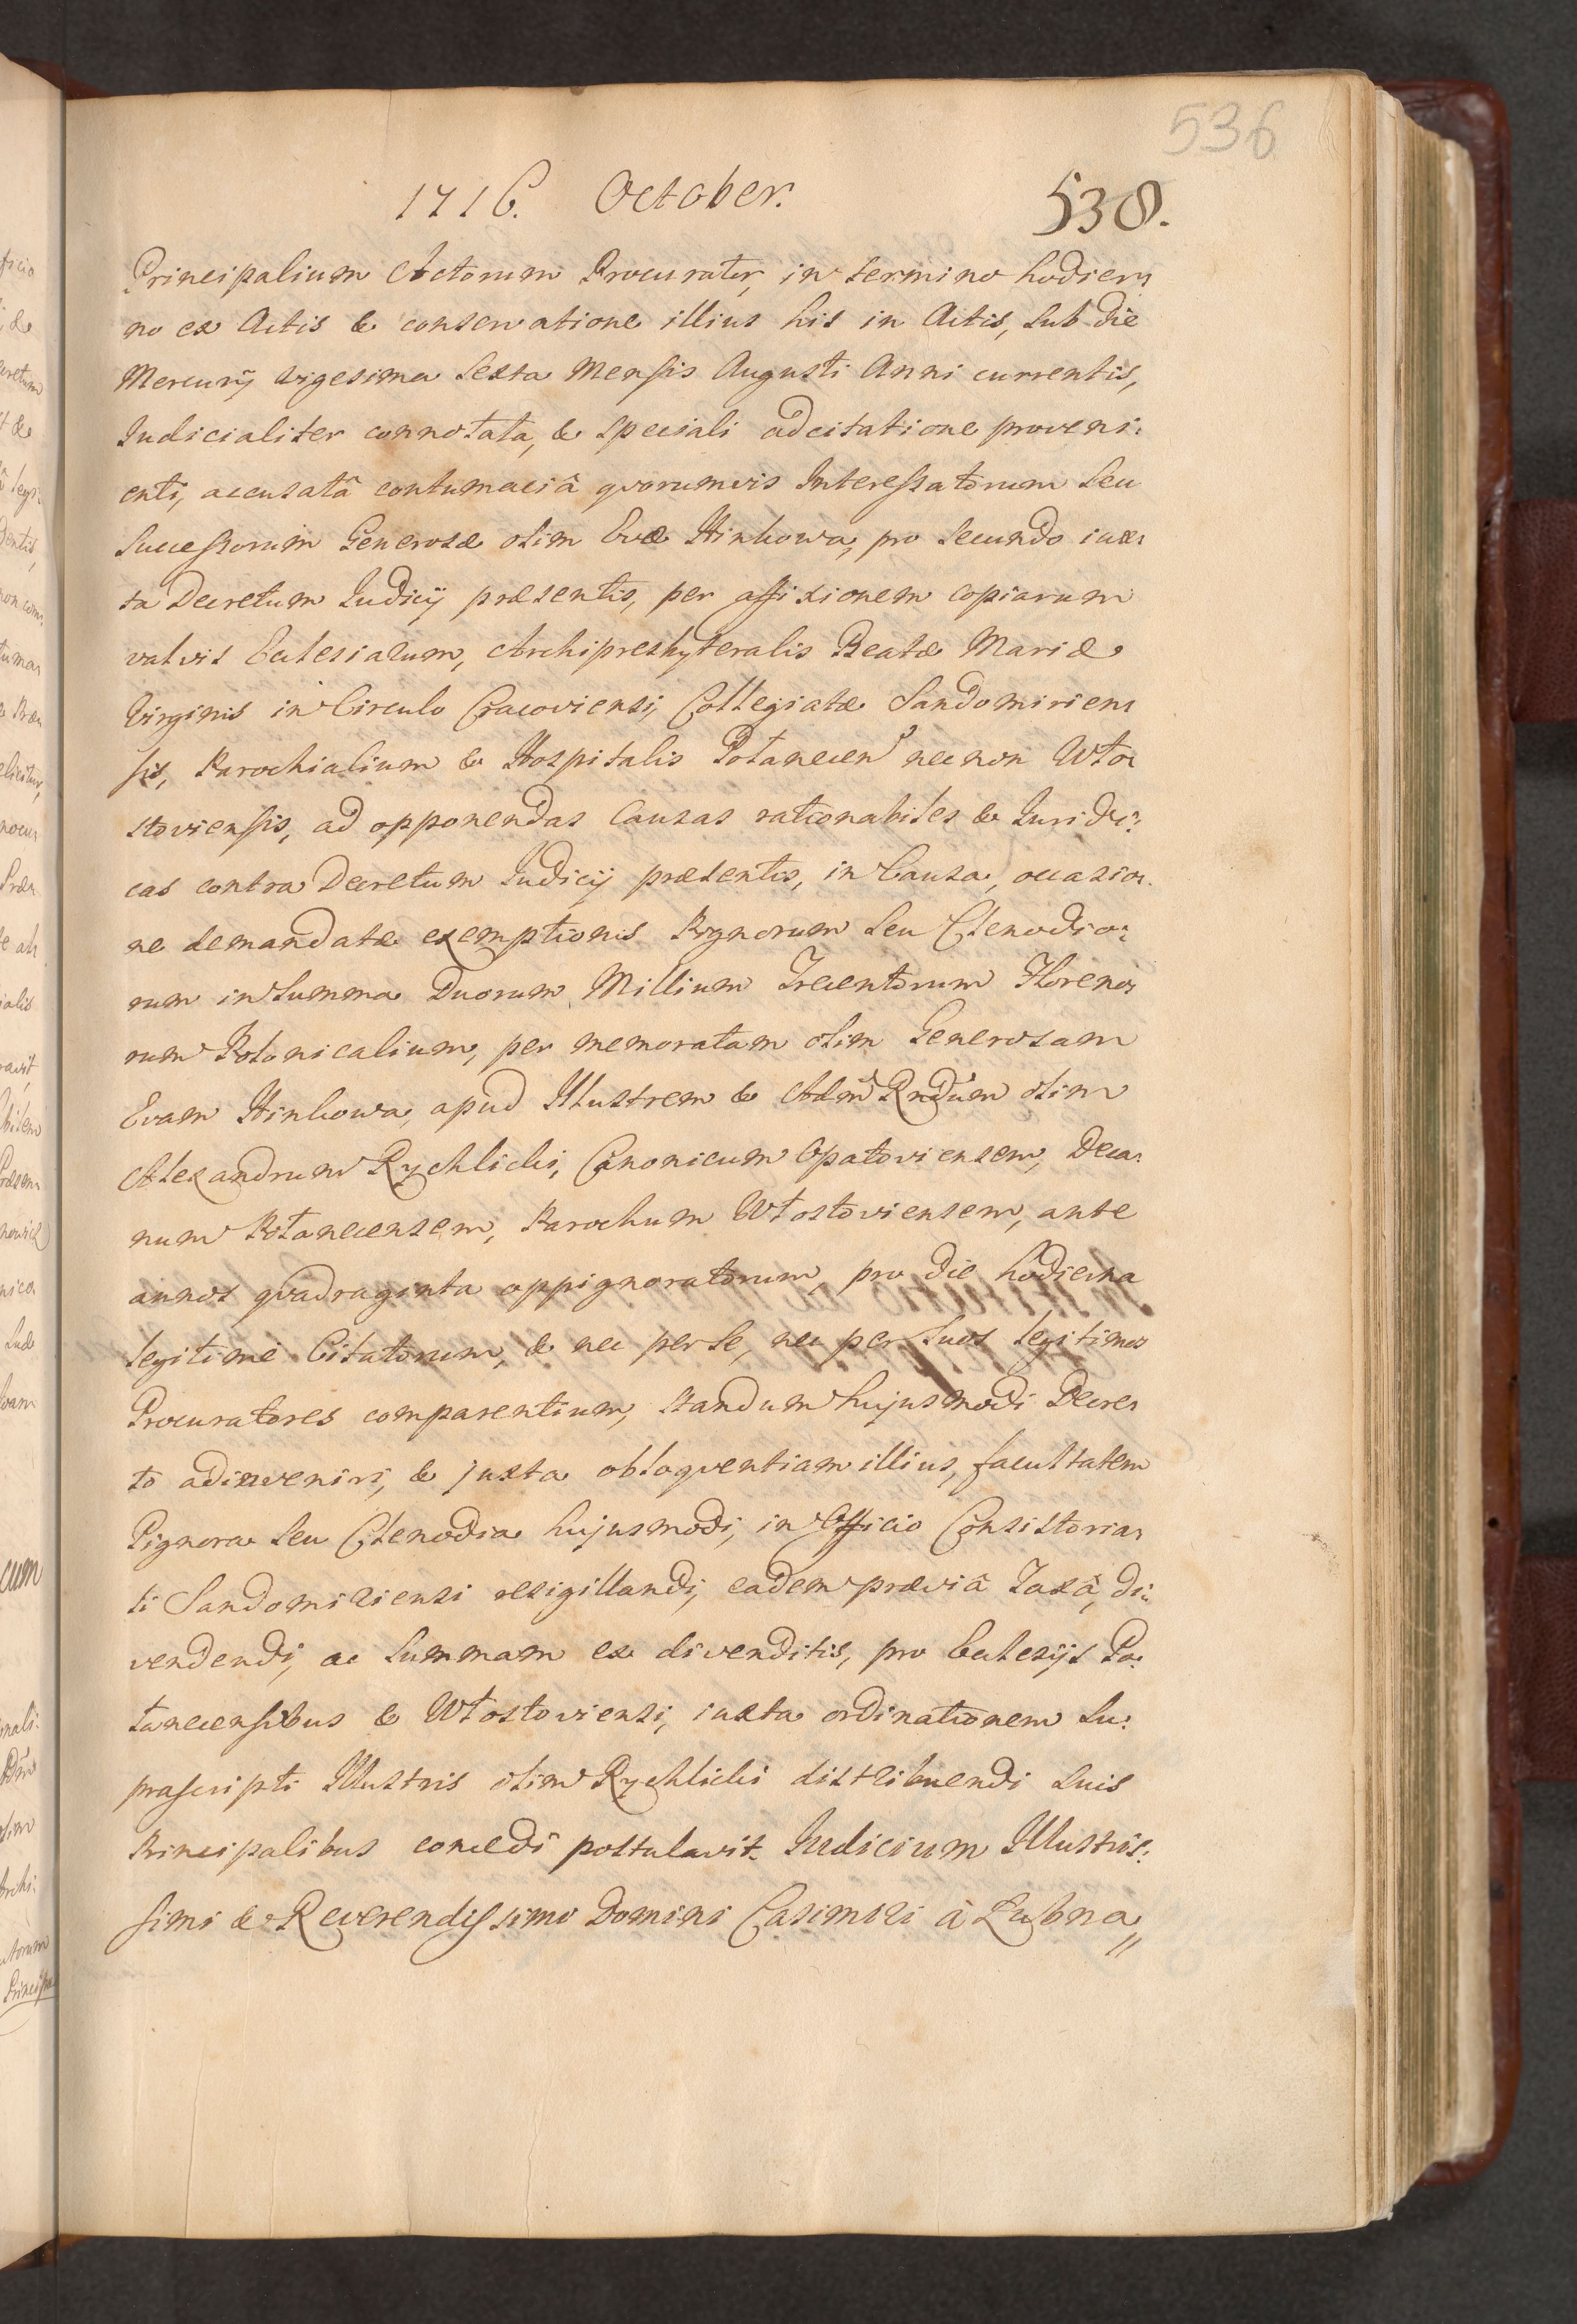 536
1716. October. 538.
Principalium Actorum Procurator, in termino hodier,
no ex Actis & conservatione illius his in Actis, sub die
Mercurij vigesima sexta Mensis Augusti Anni currentis,
Iudicialiter connotata, & speciali adcitatione proveni:
enti, accusatâ contumaciâ quorumvis Interessatorum seu
Successorum Generosæ olim Evæ Hinkowa, pro secundo iux,
ta Decretum Iudicij præsentis, per affixionem copiarum
valvis Ecclesiarum, Archipresbyteralis Beatæ Mariæ
Virginis in Circulo Cracoviensi, Collegiatæ Sandomirien,
sis, Parochialium & Hospitalis Połanecen necnon Wło,
stoviensis, ad opponendas Causas rationabiles & Iuridi:
cas contra Decretum Iudicij præsentis, in Causa, occasio,
ne demandatæ exemptionis Pignorum seu Clenodio:
rum in Summa Duorum Millium Trecentorum Floreno,
rum Polonicalium, per memoratam olim Generosam
Evam Hinkowa, apud Illustrem & Adm Rndum olim
Alexandrum Rychlicki, Canonicum Opatoviensem, Deca:
num Połanecensem, Parochum Włostoviensem, ante
annos qvadraginta oppignoratorum, pro die hodierna
legitimè Citatorum, & nec per se, nec per suos legitimos
Procuratores comparentium, standum hujusmodi Decre,
to adinveniri, & juxta obloqventiam illius, facultatem
Pignora seu Clenodia hujusmodi, in Officio Consistoria,
li Sandomiriensi resigillandi, eadem præviâ Taxâ, di:
vendendi, ac Summam ex divenditis, pro Ecclesijs Po:
łanecensibus & Włostoviensi, iuxta ordinationem Su:
prascripti Illustris olim Rychlicki distribuendi suis
Principalibus concedi postulavit. Iudicium Illustris:
simi & Reverendissimi Domini Casimiri à Łubna,,